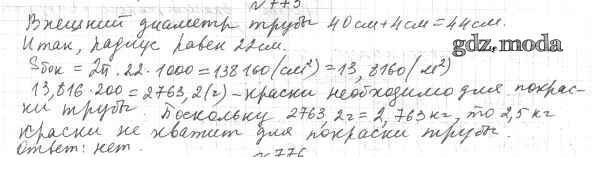 Внешний диаметр трубы 40см+4см=44см.
Итак, радиус равен 22см.
gdz.moda
Sбок = 2π · 22 · 1000 = 138160 (см²) = 13,8160 (м²)
13,816 · 200 = 2763,2 (г) – краски необходимо для покрас-
ки трубы. Поскольку 2763,2г = 2,763 кг, то 2,5 кг
краски не хватит для покраски трубы.
Ответ: нет.
№776